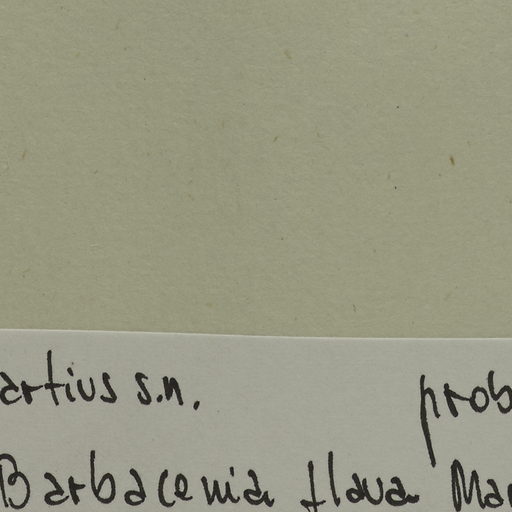 artius s.n. prob
Barbacenia flava Mar